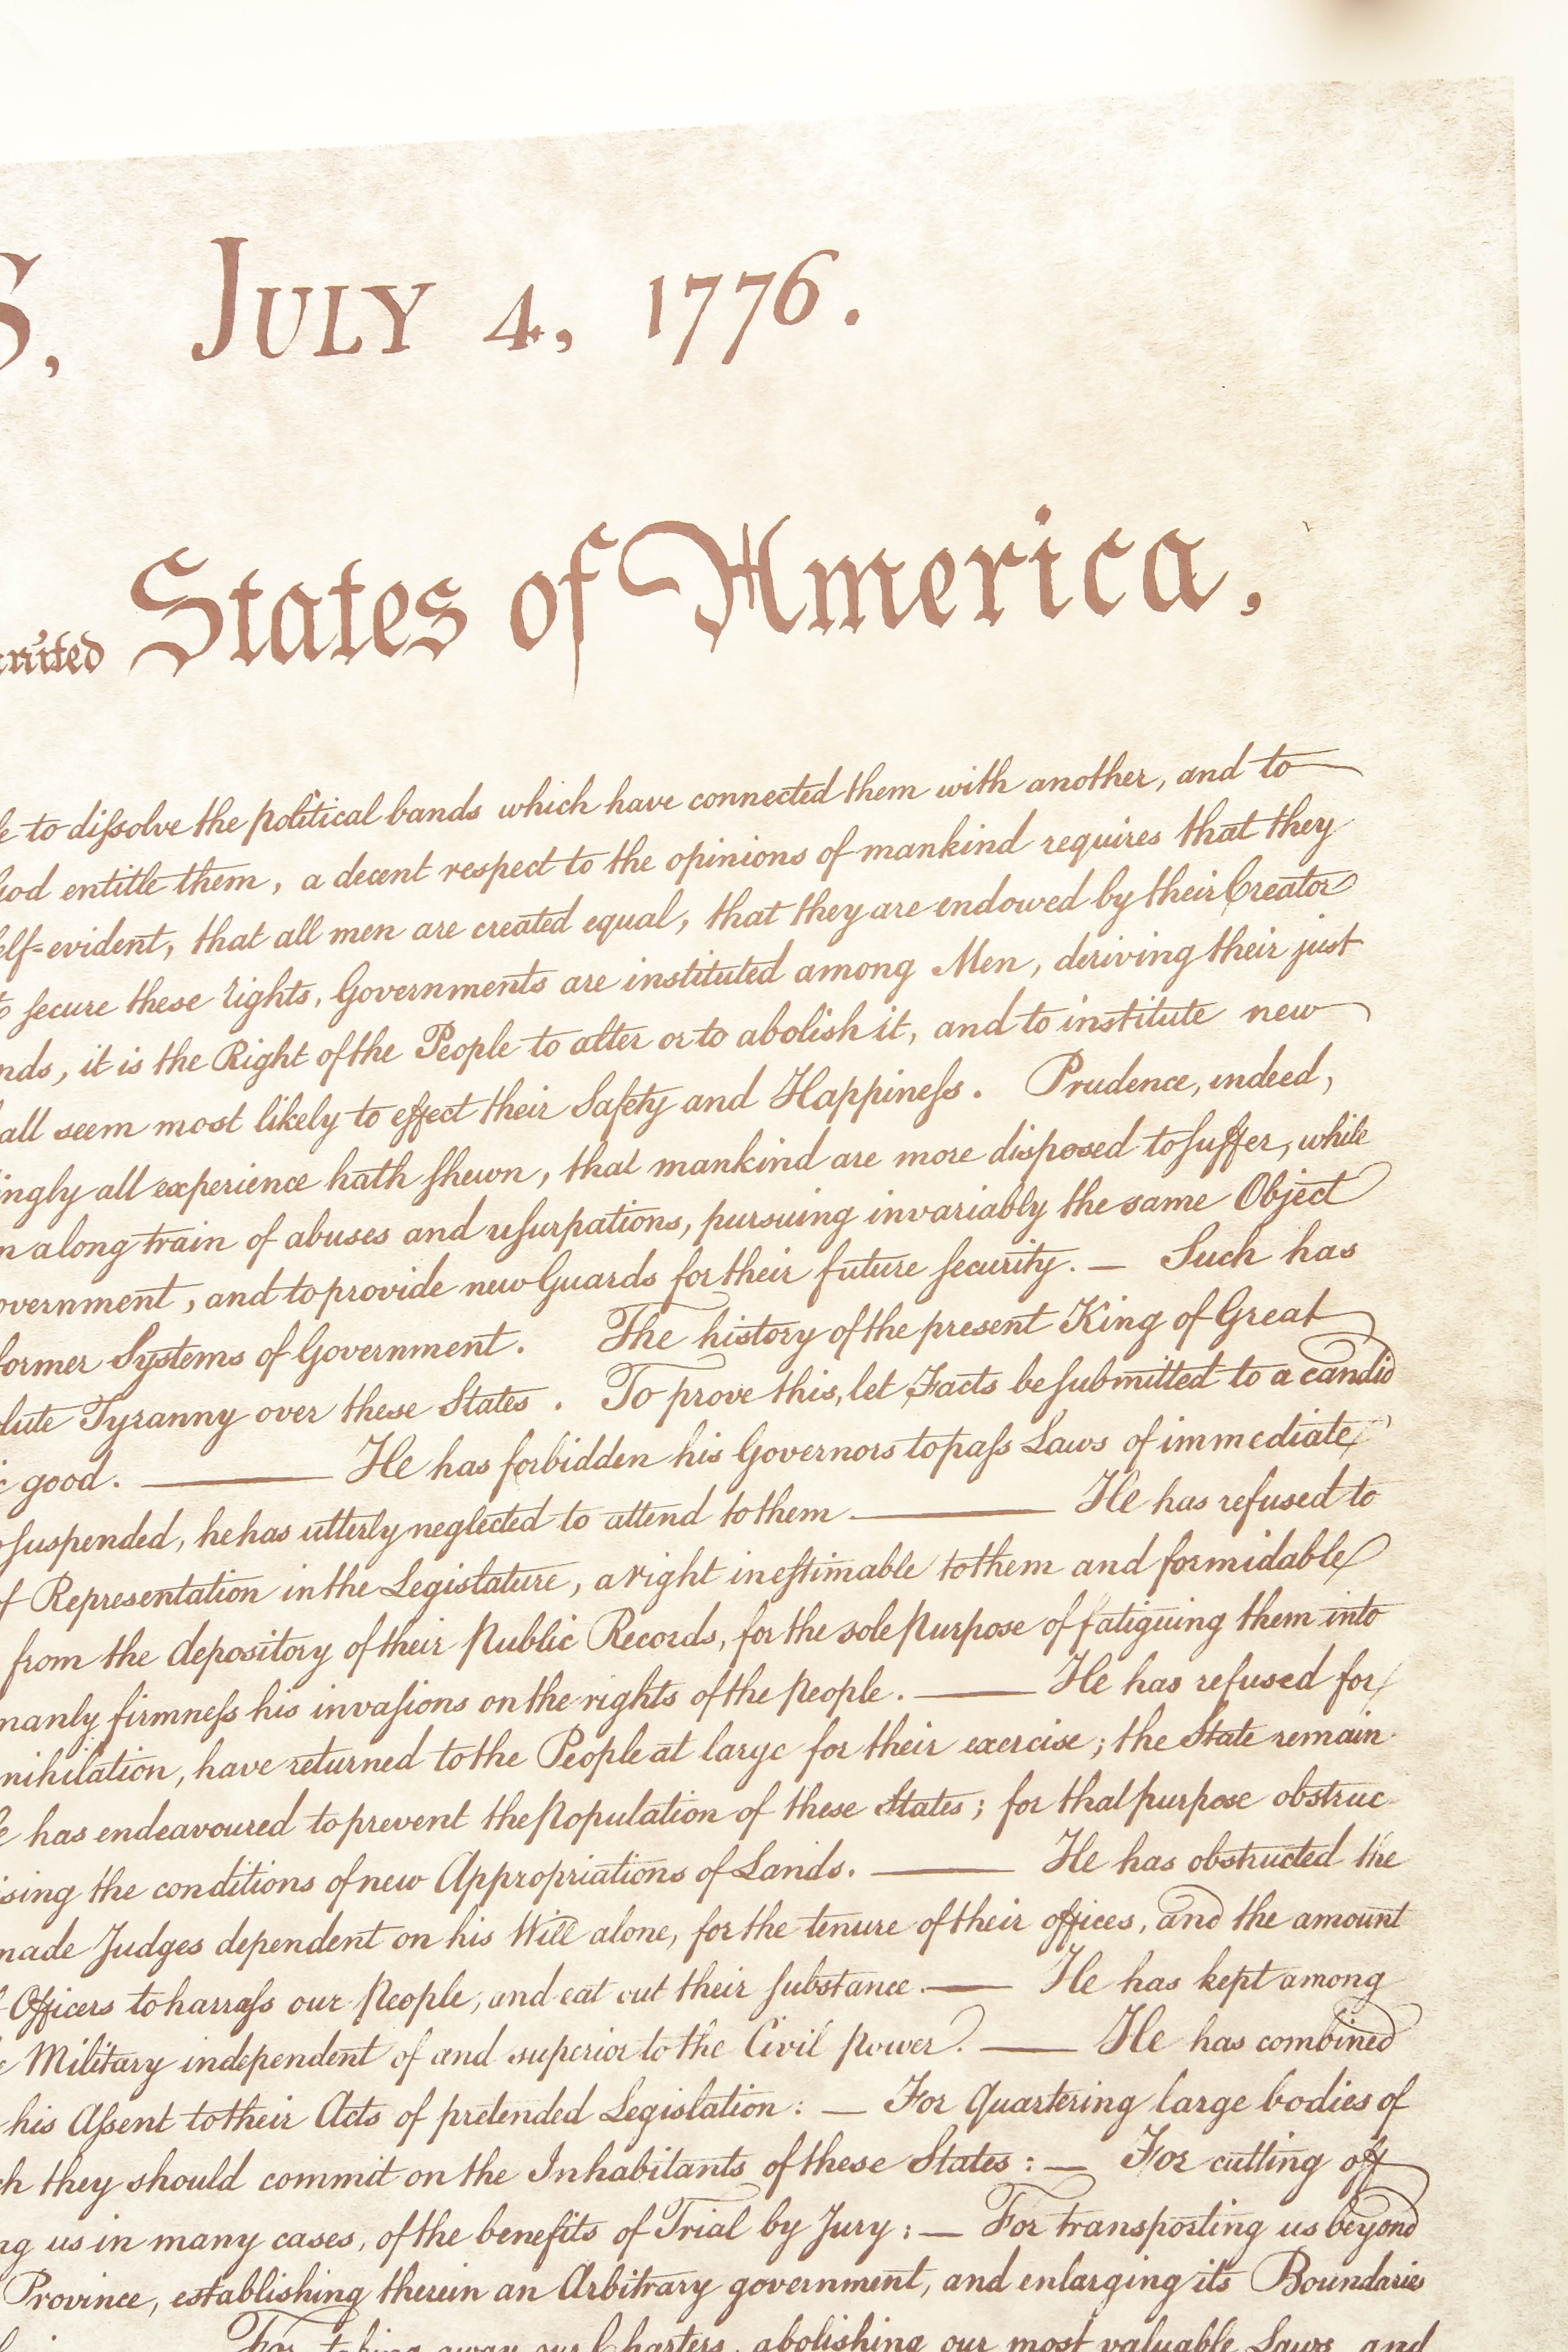 S, JULY 4, 1776.
States of America,
to dissolve the political bands which have connected them with another, and to
God entitle them, a decent respect to the opinions of mankind requires that they
self-evident, that all men are created equal, that they are endowed by their Creator
secure these rights, Governments are instituted among Men, deriving their just
it is the Right of the People to alter or to abolish it, and to institute new
all seem most likely to effect their Safety and Happiness. Prudence, indeed,
ingly all experience hath shewn, that mankind are more disposed to suffer, while
n a long train of abuses and usurpations, pursuing invariably the same Object
overnment, and to provide new Guards for their future security. — Such has
former Systems of Government. The history of the present King of Great
lute Tyranny over these States. To prove this, let Facts be submitted to a candid
c good. — He has forbidden his Governors to pass Laws of immediate
suspended, he has utterly neglected to attend to them — He has refused to
of Representation in the Legislature, a right inestimable to them and formidable
from the depository of their Public Records, for the sole purpose of fatiguing them into
manly firmness his invasions on the rights of the people. — He has refused for
nihilation, have returned to the People at large for their exercise; the State remain-
e has endeavoured to prevent the population of these States; for that purpose obstruc-
ising the conditions of new Appropriations of Lands. — He has obstructed the
made Judges dependent on his Will alone, for the tenure of their offices, and the amount
Officers to harrass our People, and eat out their substance. — He has kept among
e Military independent of and superior to the Civil power. — He has combined
his Assent to their Acts of pretended Legislation: — For Quartering large bodies of
ch they should commit on the Inhabitants of these States: — For cutting off
ng us in many cases, of the benefits of Trial by Jury: — For transporting us beyond
Province, establishing therein an Arbitrary government, and enlarging its Boundaries
For taking away our Charters, abolishing our most valuable Laws, and